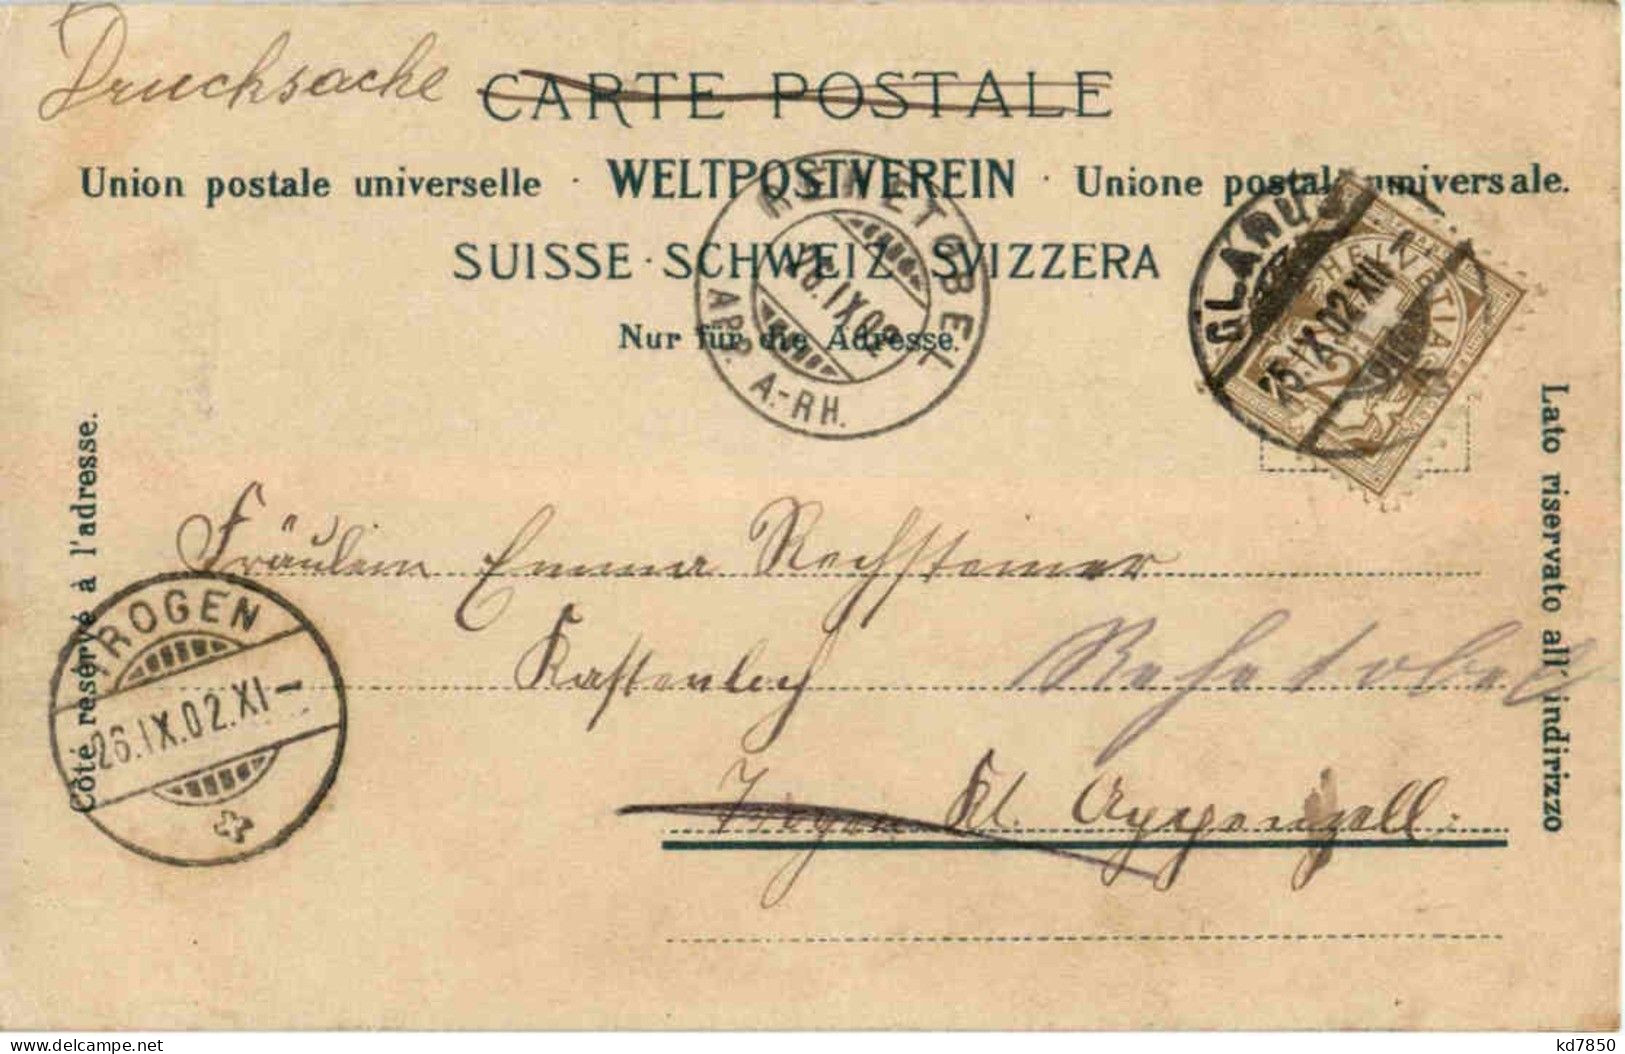 Drucksache
CARTE POSTALE
Union postale universelle · WELTPOSTVEREIN · Unione postale universale.
SUISSE · SCHWEIZ · SVIZZERA
Nur für die Adresse.
REHETOBEL
26.IX.02
APP. A.-RH.
GLARUS
25.IX.02.XII
HELVETIA
Côté réservé à l'adresse.
Lato riservato all' indirizzo
Fräulein Emma Rechsteiner
Kastenloch Rehetobel
Trogen Kt. Appenzell.
TROGEN
26.IX.02.XI-
kd7850